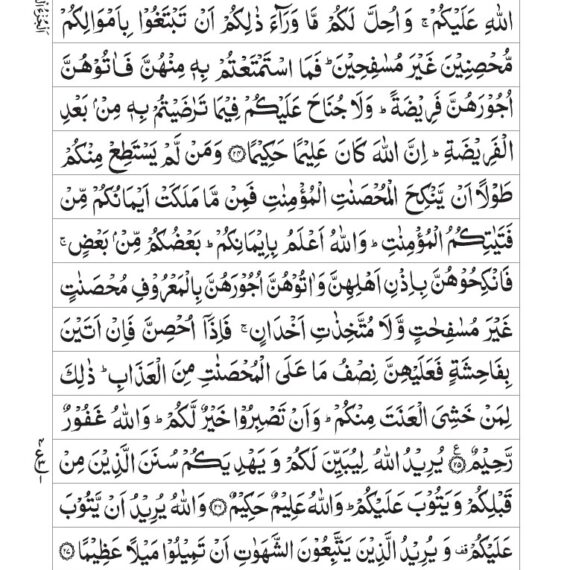 اللهِ عَلَيْكُمْ ۚ وَاُحِلَّ لَكُمْ مَّا وَرَآءَ ذٰلِكُمْ اَنْ تَبْتَغُوْا بِاَمْوَالِكُمْ
مُّحْصِنِيْنَ غَيْرَ مُسٰفِحِيْنَ ؕ فَمَا اسْتَمْتَعْتُمْ بِهٖ مِنْهُنَّ فَاٰتُوْهُنَّ
اُجُوْرَهُنَّ فَرِيْضَةً ؕ وَلَا جُنَاحَ عَلَيْكُمْ فِيْمَا تَرٰضَيْتُمْ بِهٖ مِنْۢ بَعْدِ
الْفَرِيْضَةِ ؕ اِنَّ اللهَ كَانَ عَلِيْمًا حَكِيْمًا ﴿۲۴﴾ وَمَنْ لَّمْ يَسْتَطِعْ مِنْكُمْ
طَوْلًا اَنْ يَّنْكِحَ الْمُحْصَنٰتِ الْمُؤْمِنٰتِ فَمِنْ مَّا مَلَكَتْ اَيْمَانُكُمْ مِّنْ
فَتَيٰتِكُمُ الْمُؤْمِنٰتِ ؕ وَاللهُ اَعْلَمُ بِاِيْمَانِكُمْ ؕ بَعْضُكُمْ مِّنْۢ بَعْضٍ ۚ
فَانْكِحُوْهُنَّ بِاِذْنِ اَهْلِهِنَّ وَاٰتُوْهُنَّ اُجُوْرَهُنَّ بِالْمَعْرُوْفِ مُحْصَنٰتٍ
غَيْرَ مُسٰفِحٰتٍ وَّلَا مُتَّخِذٰتِ اَخْدَانٍ ۚ فَاِذَاۤ اُحْصِنَّ فَاِنْ اَتَيْنَ
بِفَاحِشَةٍ فَعَلَيْهِنَّ نِصْفُ مَا عَلَى الْمُحْصَنٰتِ مِنَ الْعَذَابِ ؕ ذٰلِكَ
لِمَنْ خَشِيَ الْعَنَتَ مِنْكُمْ ؕ وَاَنْ تَصْبِرُوْا خَيْرٌ لَّكُمْ ؕ وَاللهُ غَفُوْرٌ
رَّحِيْمٌ ﴿۲۵﴾ يُرِيْدُ اللهُ لِيُبَيِّنَ لَكُمْ وَيَهْدِيَكُمْ سُنَنَ الَّذِيْنَ مِنْ
قَبْلِكُمْ وَيَتُوْبَ عَلَيْكُمْ ؕ وَاللهُ عَلِيْمٌ حَكِيْمٌ ﴿۲۶﴾ وَاللهُ يُرِيْدُ اَنْ يَّتُوْبَ
عَلَيْكُمْ قف وَيُرِيْدُ الَّذِيْنَ يَتَّبِعُوْنَ الشَّهَوٰتِ اَنْ تَمِيْلُوْا مَيْلًا عَظِيْمًا ﴿۲۷﴾